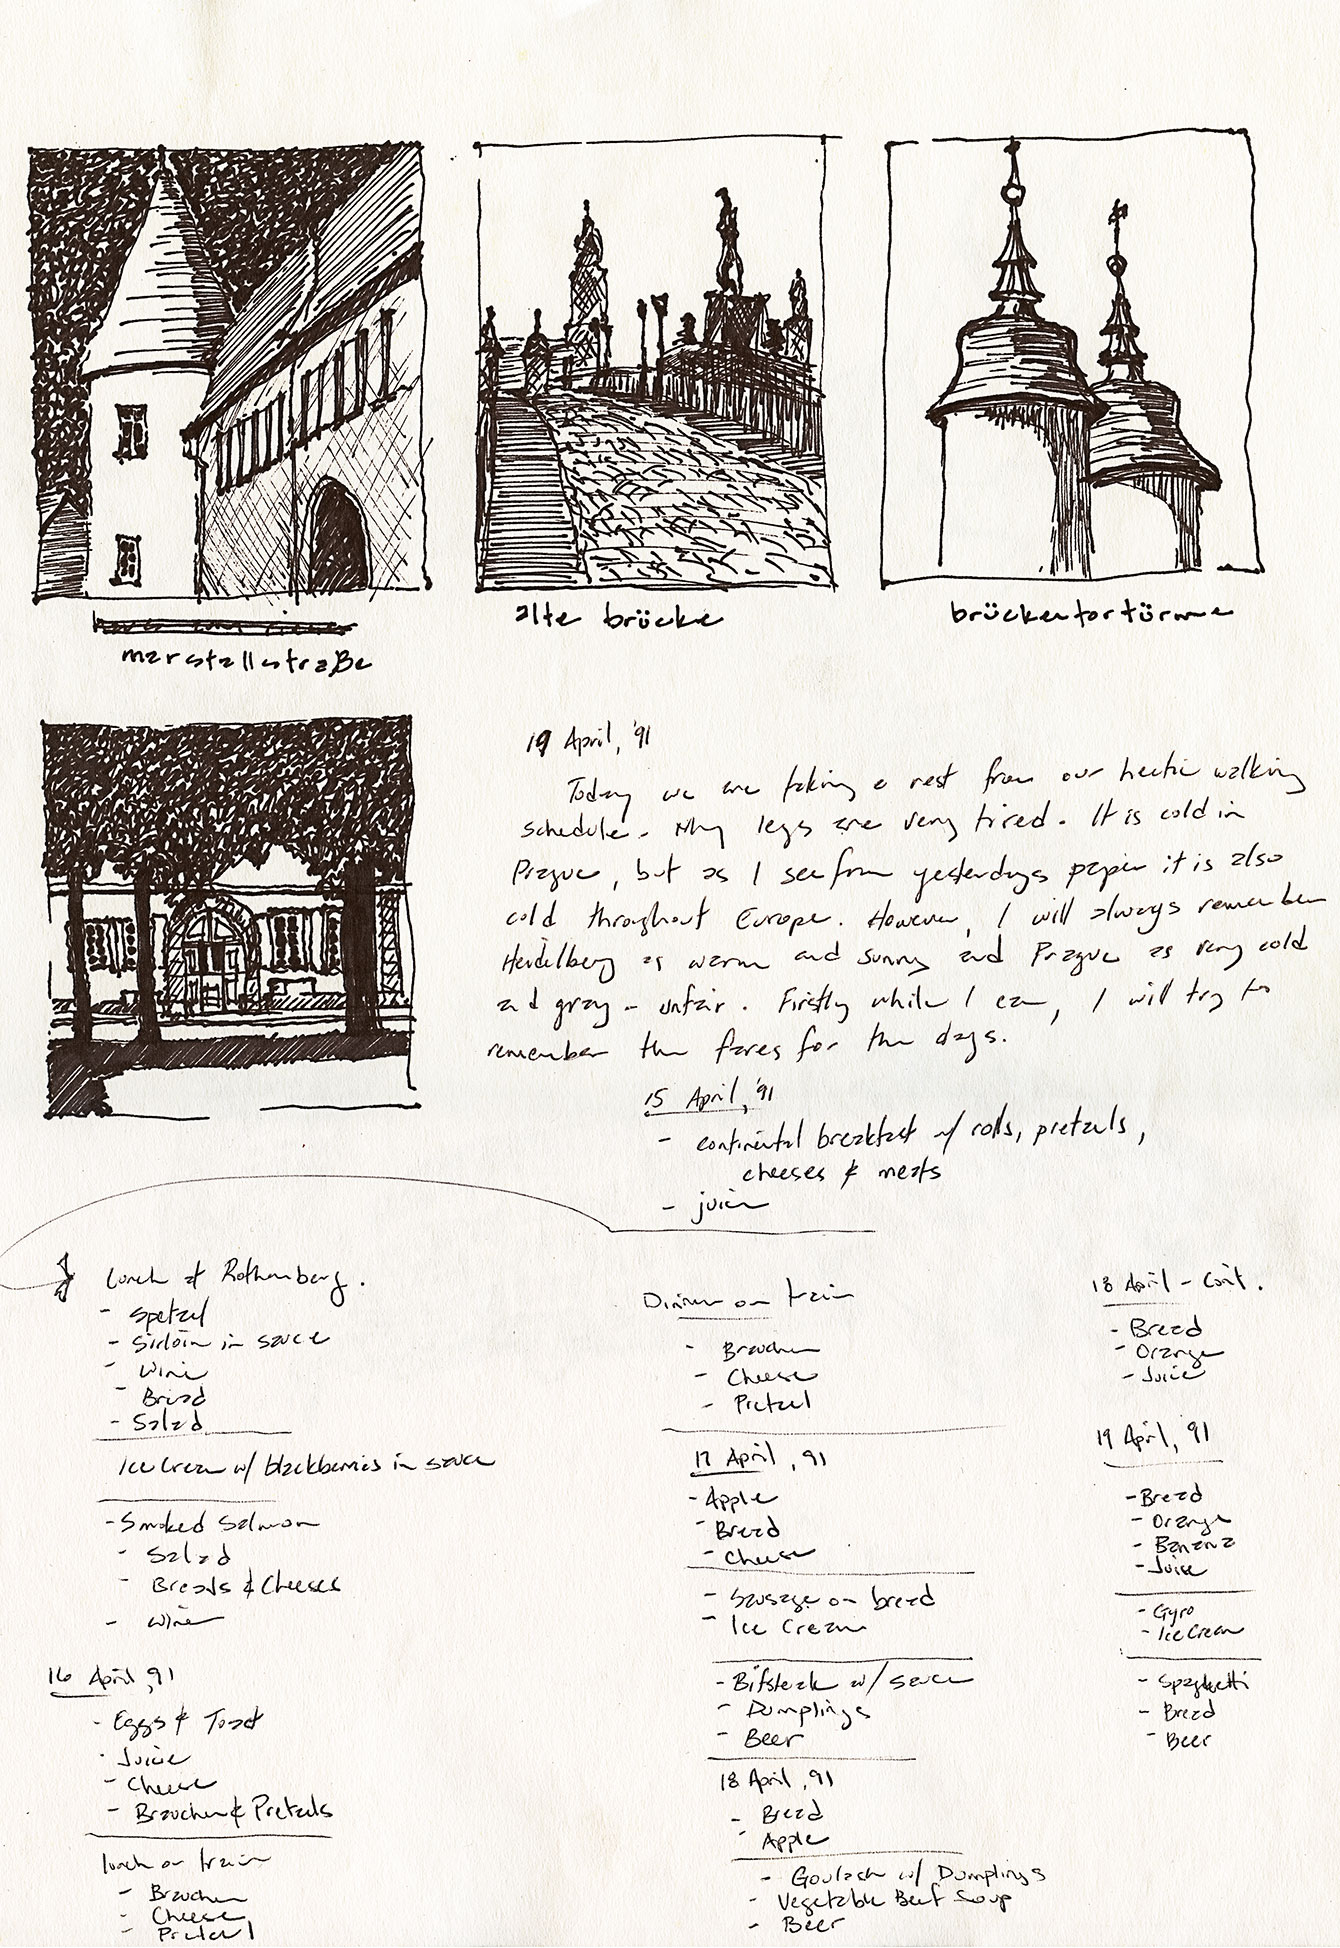 marstallstraße
alte brücke
brückentortürme
19 April, '91
Today we are taking a rest from our hectic walking
schedule. My legs are very tired. It is cold in
Prague, but as I see from yesterdays paper it is also
cold throughout Europe. However, I will always remember
Heidelberg as warm and sunny and Prague as very cold
and gray - unfair. Firstly while I can, I will try to
remember the fares for the days.
15 April, '91
- continental breakfast w/ rolls, pretzels,
cheeses & meats
- juice
lunch at Rothenberg.
- Spetzel
- Sirloin in sauce
- Wine
- Bread
- Salad
Ice Cream w/ blackberries in sauce
- Smoked Salmon
- Salad
- Breads & Cheeses
- Wine
16 April, 91
- Eggs & Toast
- Juice
- Cheese
- Brauchen & Pretzels
lunch on train
- Brauchen
- Cheese
- Pretzel
Dinner on train
- Brauchen
- Cheese
- Pretzel
17 April, 91
- Apple
- Bread
- Cheese
- Sausage on bread
- Ice Cream
- Bifsteak w/ sauce
- Dumplings
- Beer
18 April, 91
- Bread
- Apple
- Goulash w/ Dumplings
- Vegetable Beef Soup
- Beer
18 April - Cont.
- Bread
- Orange
- Juice
19 April, 91
- Bread
- Orange
- Banana
- Juice
- Gyro
- Ice Cream
- Spaghetti
- Bread
- Beer